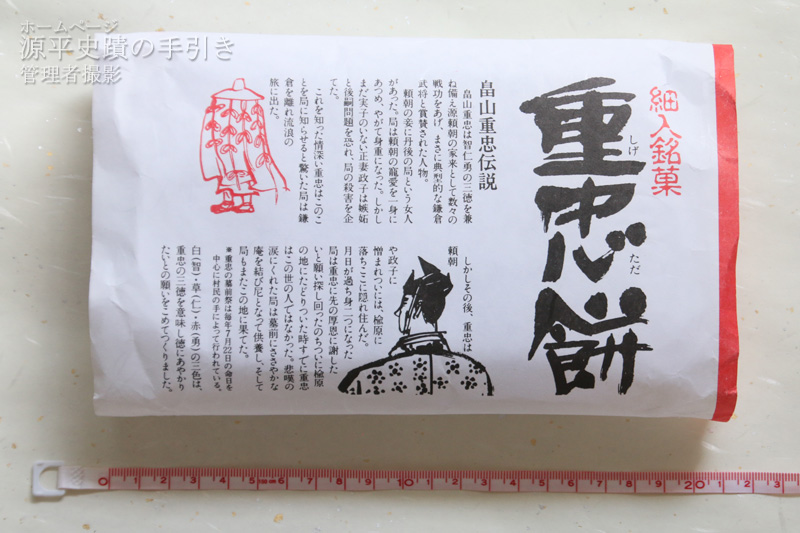 ホームページ
源平史蹟の手引き
管理者撮影
細入銘菓
重忠餅
しげ
ただ
畠山重忠伝説
畠山重忠は智仁勇の三徳を兼
ね備え源頼朝の家来として数々の
戦功をあげ、まさに典型的な鎌倉
武将と賞賛された人物。
頼朝の妾に丹後の局という女人
があった。局は頼朝の寵愛を一身に
あつめ、やがて身重になった。しかし
まだ実子のいない正妻政子は嫉妬
と後嗣問題を恐れ、局の殺害を企
てた。
これを知った情深い重忠はこのこ
とを局に知らせると驚いた局は鎌
倉を離れ流浪の
旅に出た。
しかしその後、重忠は
頼朝
や政子に
憎まれついには、楡原に
落ちここに隠れ住んだ。
月日が過ち身二つになった
局は重忠に先の厚恩に謝した
いと願い探し回ったのちついに楡原
の地にたどりついた時すでに重忠
はこの世の人ではなかった。悲嘆の
涙にくれた局は墓前にささやかな
庵を結び尼となって供養し、そして
局もまたこの地に果てた。
※重忠の墓前祭は毎年7月22日の命日を
中心に村民の手によって行われている。
白(智)・草(仁)・赤(勇)の三色は、
重忠の三徳を意味し徳にあやかり
たいとの願いをこめてつくりました。
1 2 3 4 5 6 7 8 9 10 1 2 3 4 5 6 7 8 9 20 1 2 3